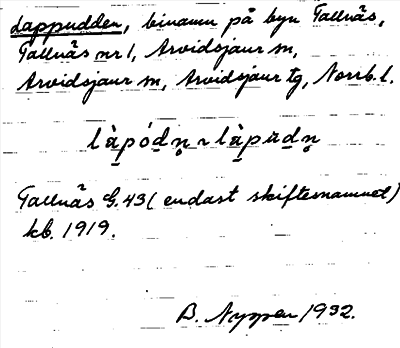 Lappudden, binamn på byn Tallnäs,
Tallnäs nr 1, Arvidsjaur sn,
Arvidsjaur sn, Arvidsjaur tg, Norrb. l.
là̱pód̲n̥ ~ là̱pud̲n̥
Tallnäs G. 43 (endast skiftesnamnet)
kb. 1919.
B. Nyman 1932.